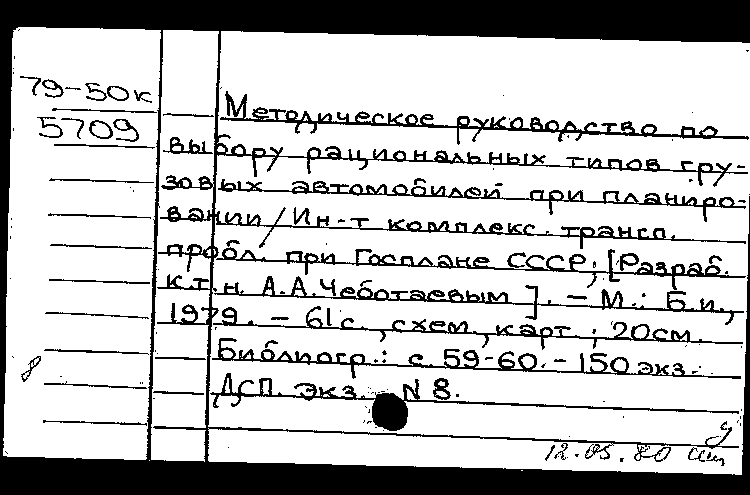 79-50к
5709
Методическое руководство по
выбору рациональных типов гру-
зовых автомобилей при планиро-
вании/Ин-т комплекс. трансп.
пробл. при Госплане СССР; [Разраб.
к.т.н. А.А.Чеботаевым]. – М.: Б.и.,
1979. – 61 с., схем., карт.; 20см.
Библиогр.: с. 59-60. – 150 экз.
ДСП. экз. N 8.
у
12.05.80